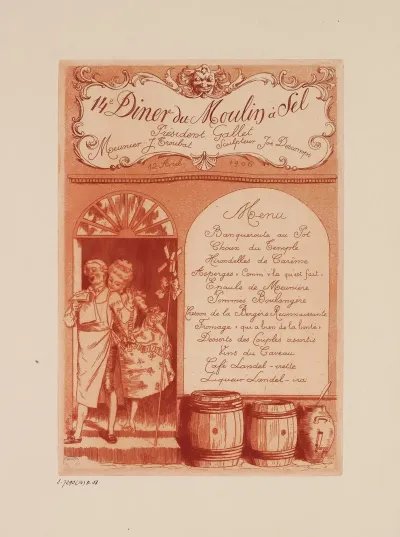 14e Dîner du Moulin à Sel
Président Gallet
Meunier J. Troubat Sculpteur Joé Descomps
12 Avril 1906
Menu
Banqueroute au Pot
Choux du Temple
Hirondelles de Carême
Asperges "Comm' v'là qu'est fait"
Epaule de Meunière
Pommes Boulangère
Cresson de la Bergère Raimoussante
Fromage "qui a bien de la bonté"
Desserts des Couples assortis
Vins du Caveau
Café Landel-rette
Liqueur Landel-ira